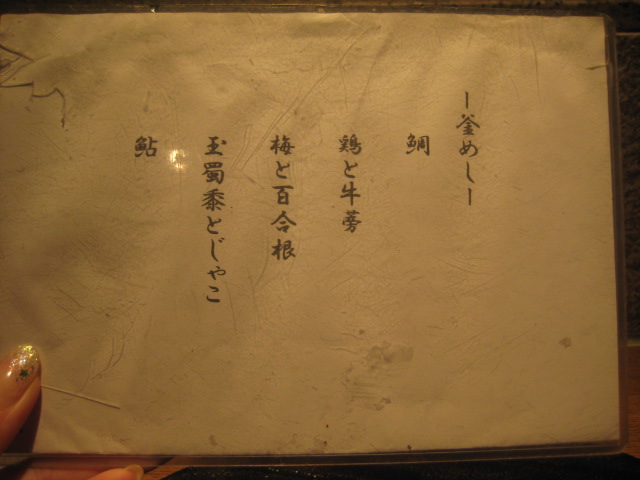 ー釜めしー
鯛
鶏と牛蒡
梅と百合根
玉蜀黍とじゃこ
鮎